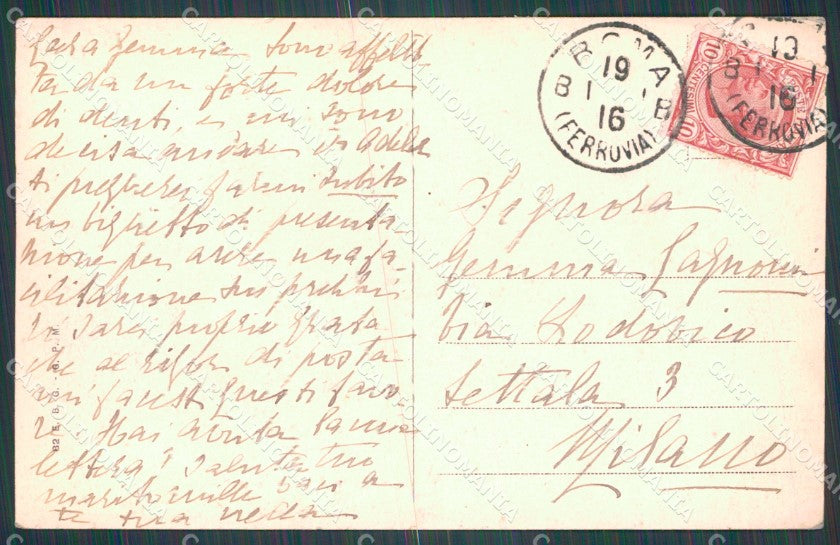 Cara Gemma sono afflit
ta da un forte dolore
di denti, e mi sono
decisa andare
ti pregherei farmi subito
un biglietto di presenta
zione per avere una fa
cilitazione sui prezzi
sarei proprio grata
che al rigor di posta
mi facessi questi favo
re Hai avuta la mia
lettera? Saluta tuo
marito mille baci a
te tua
82 E. S. G. - S. P. M.
ROMA
19
B I B
16
(FERROVIA)
19
B I
16
(FERROVIA)
10 CENTESIMI 10
Signora
Gemma
Via Lodovico
Settala 3
Milano
CARTOLINOMANIA